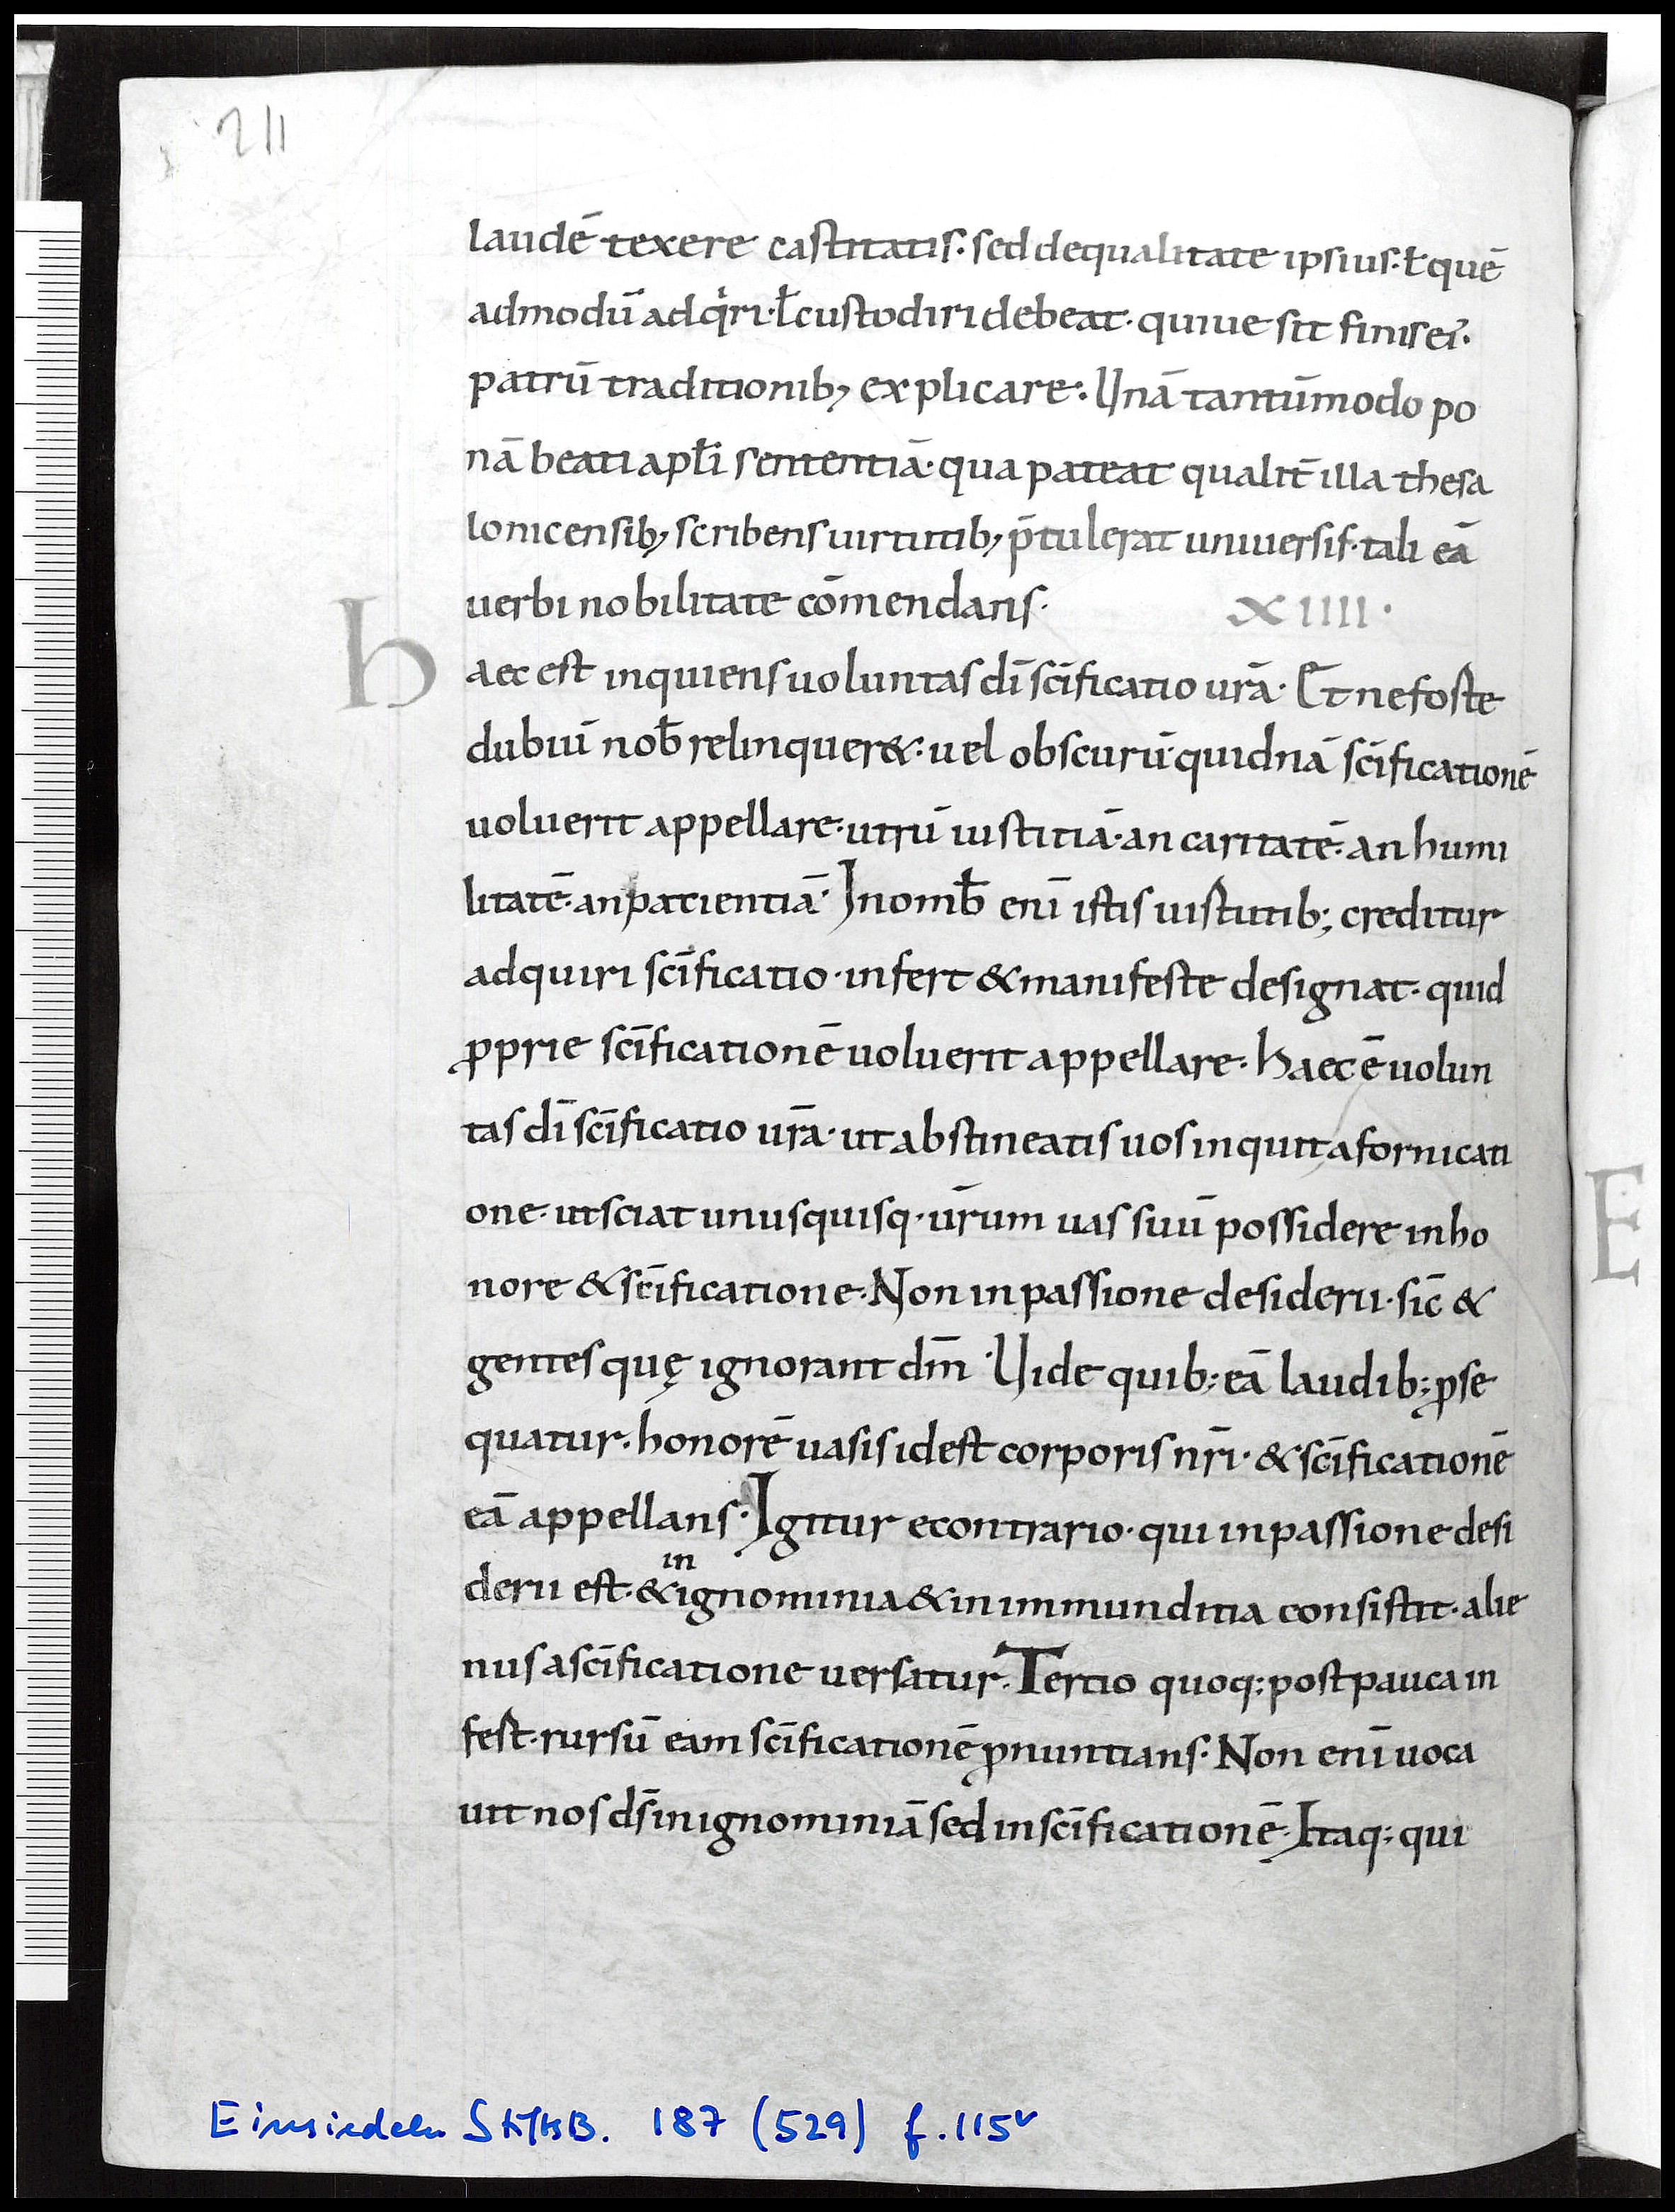 211
laudē texere castitatis· sed dequalitate ipsius· ł quē
admodū adq̇ri· ł custodiri debeat· quiue sit finis ei᷒·
patrū traditionib; explicare· Unā tantūmodo po
nā beati apłi sententiā· qua pateat qualit̄ illa thesa
lonicensib; scribens uirtutib; p̄tulerat uniuersis· tali eā
uerbi nobilitate cōmendans· XIIII·
haec est inquiens uoluntas dī sc̄ificatio ur̄a· Et ne foste
dubiū nob̄ relinquer&· uel obscurū· quidnā sc̄ificationē
uoluerit appellare· utrū iustitiā· an caritatē· an humi
litatē· an patientiā· Inomb̄ enī istis uistutib; creditur
adquiri sc̄ificatio· infert & manifeste designat· quid
ꝓprie sc̄ificationē uoluerit appellare· haec ē uolun
tas dī sc̄ificatio ur̄a· ut abstineatis uos inquit a fornicati
one· ut sciat unusquisq· ur̄um uas suū possidere in ho
nore & sc̄ificatione· Non in passione desiderii· sic̄ &
gentes quę ignorant dm̄· Uide quib; eā laudib; ꝓse
quatur· honorē uasis id est corporis nr̄i· & sc̄ificationē
eā appellans· Igitur econtrario· qui in passione desi
in
derii est· & ignominia & in immunditia consistit· alie
nus a sc̄ificatione uersatur· Tertio quoq; post pauca in
fest· rursū eam sc̄ificationē ꝓnuntians· Non enī uoca
uit nos ds̄ in ignominiā sed in sc̄ificationē· Itaq; qui
E
Einsiedeln StiftsB. 187 (529) f. 115v